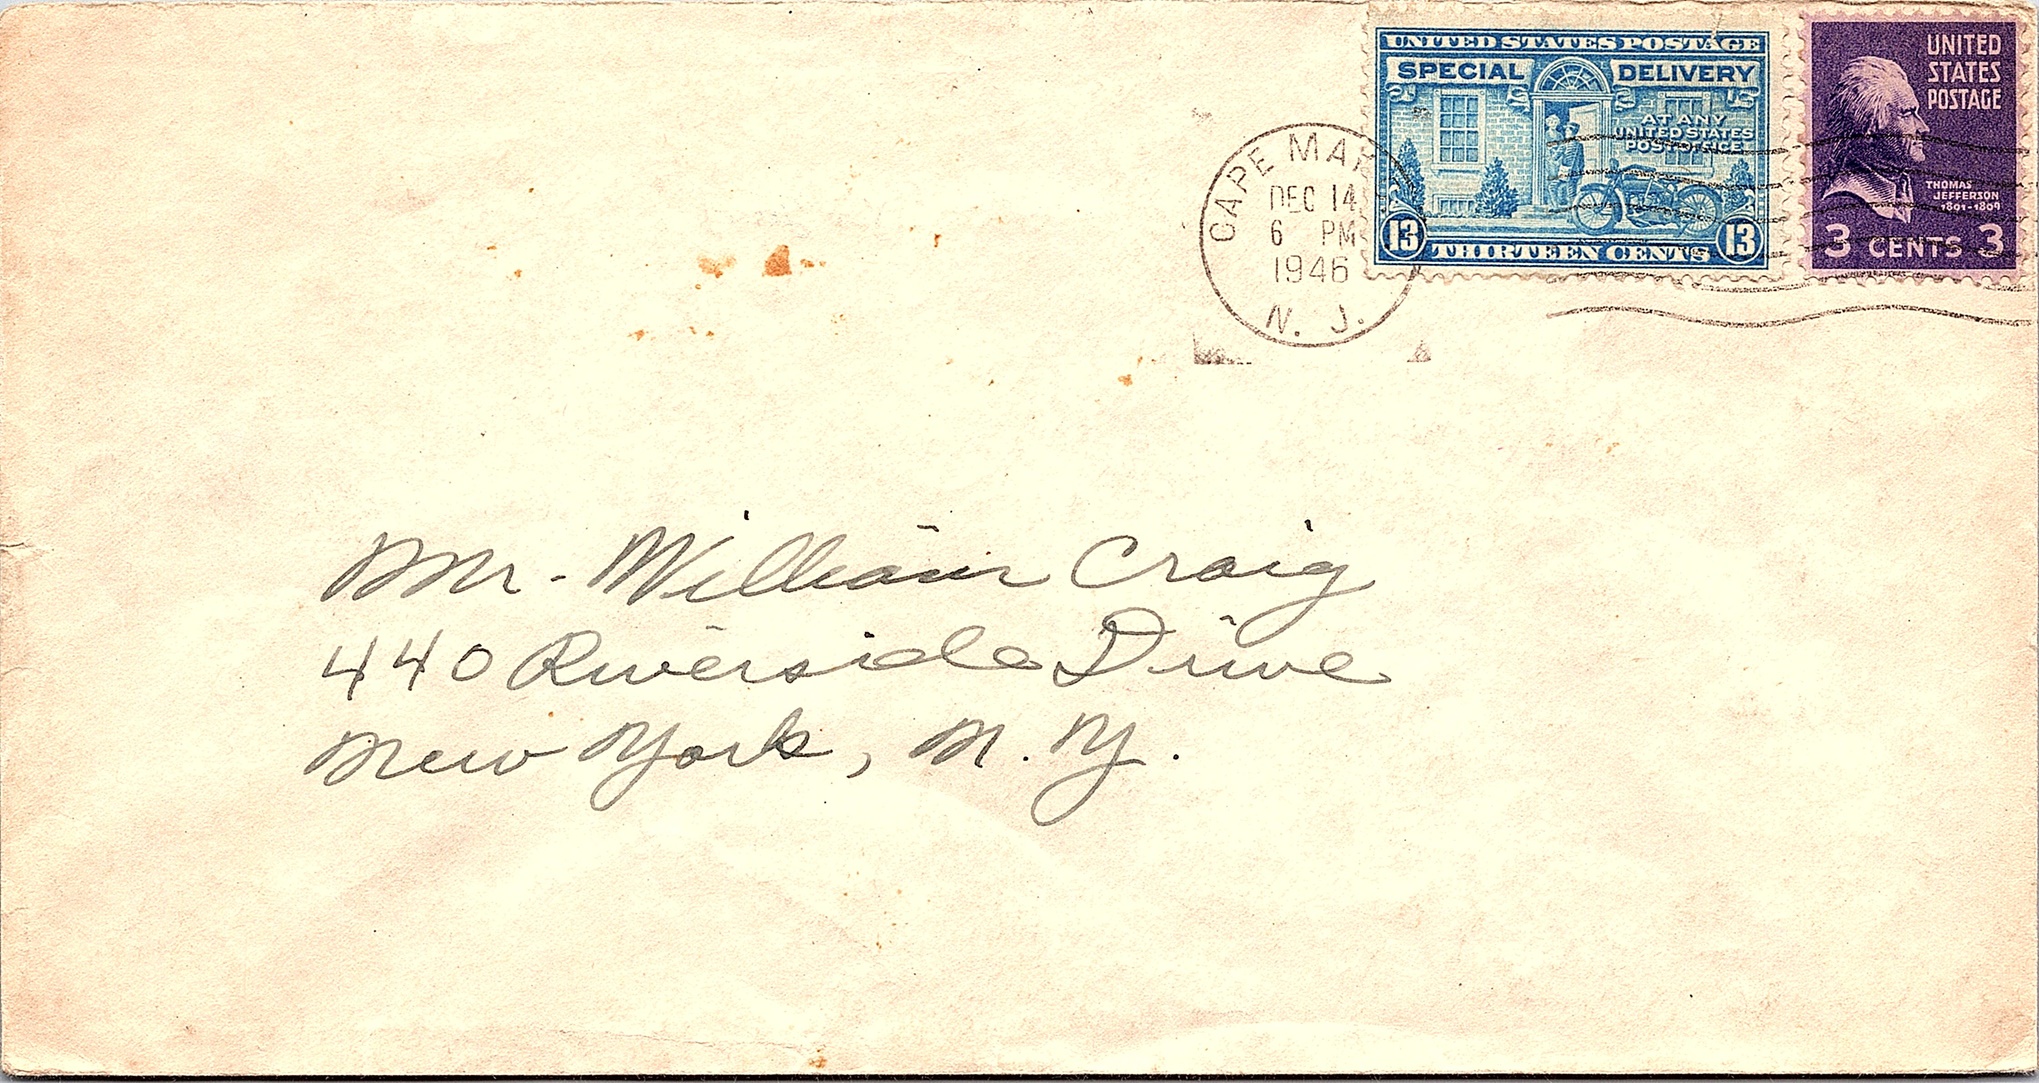 UNITED STATES POSTAGE
SPECIAL DELIVERY
AT ANY
UNITED STATES
POST OFFICE
13 THIRTEEN CENTS 13
UNITED
STATES
POSTAGE
THOMAS
JEFFERSON
1801-1809
3 CENTS 3
CAPE MA
DEC 14
6 PM
1946
N. J.
Mr. William Craig
440 Riverside Drive
New York, N. Y.